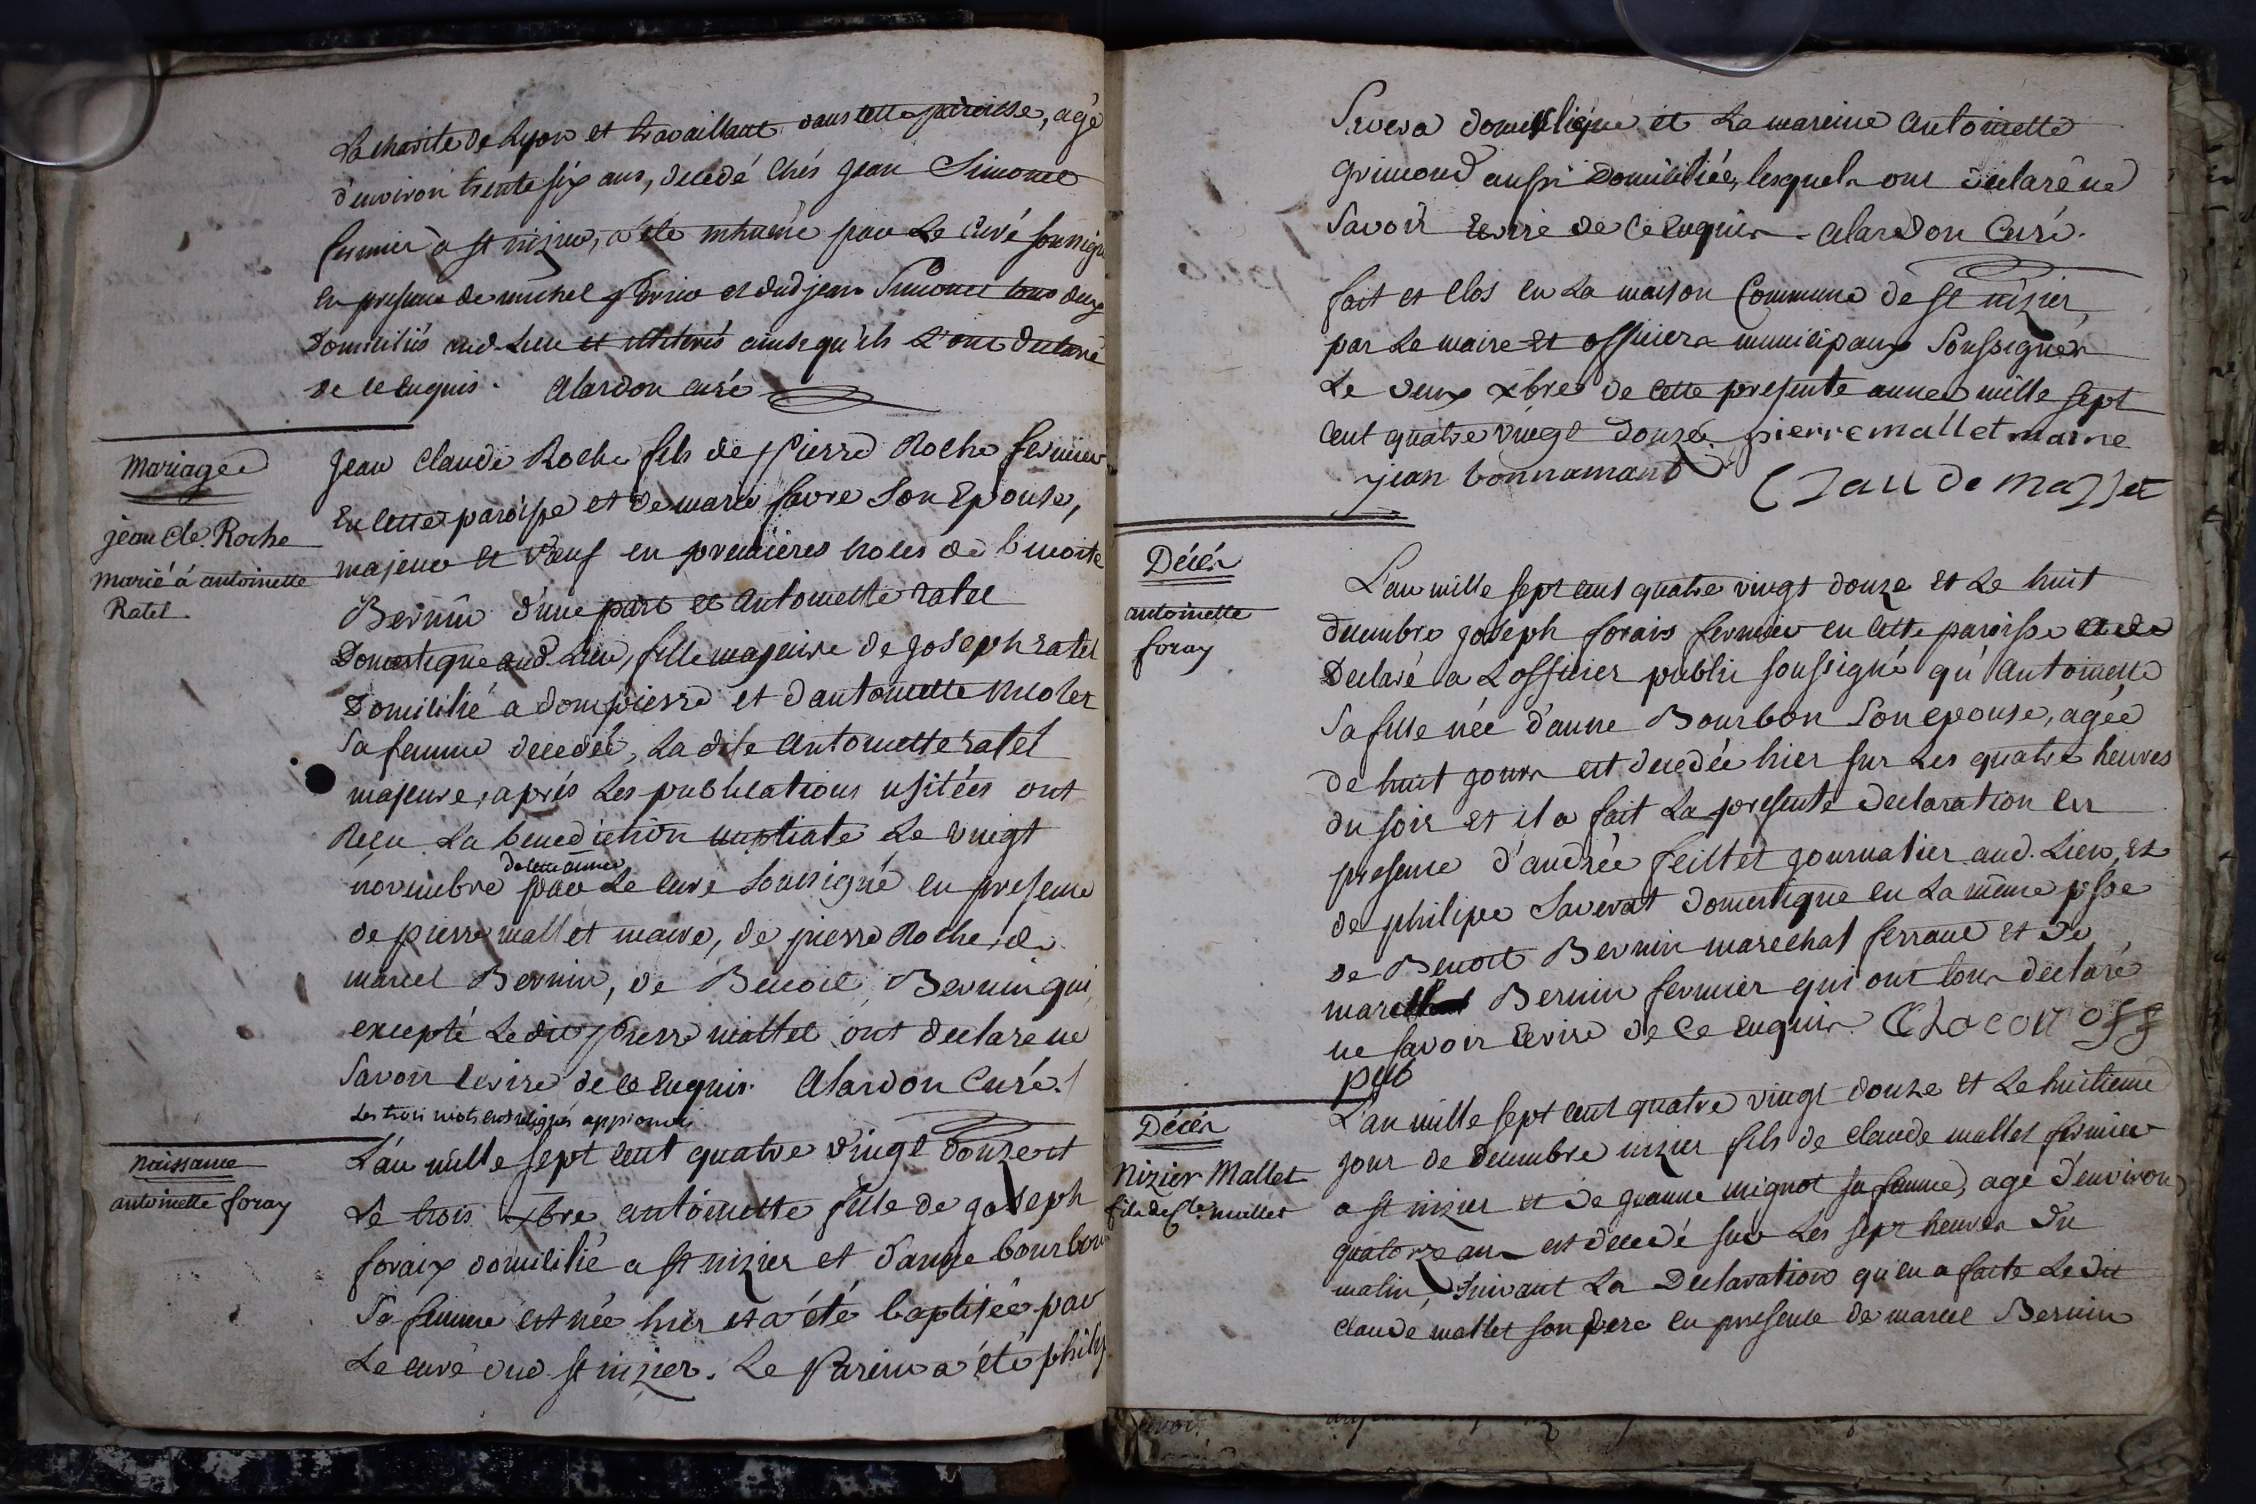 La charité de Lyon et travaillant dans cette paroisse, agé
d'environ trente six ans, decedé chés jean Simonet
fermier a st nizier, a été inhumé par le curé soussigné
en presence de michel et dud jean Simonet tous deux
Domiciliés aud. Lieu et illiterés ainsi qu'ils l'ont declaré
de ce enquis. alardon curé
mariage
jean Cle. Roche
marié á antoinette
Ratel
jean claude Roche fils de pierre Roche fermier
en cette paroisse et de marie favre son Epouse,
majeur et veuf en premieres noces de benoite
Bernin d'une part et antoinette ratel
Domestique aud. Lieu, fille majeure de joseph ratel
Domicilié a dompierre et d'antoinette nicolet
sa femme decedée, La dite antoinette ratel
majeure, aprés Les publications usitées ont
Reçu La benediction nuptiale Le vingt
de cette année
novembre par Le curé soussigné en presence
de pierre mallet maire, de pierre Roche, de
marcel Bernin, de Benoit Bernin qui
excepté Le dit pierre mallet ont declaré ne
savoir ecrire de ce enquis. alardon curé.
Les trois mots entrelignés approuvés
Naissance
antoinette foray
L'an mille sept cent quatre vingt douze et
Le trois xbre antoinette fille de joseph
foraix domicilié a st nizier et d'anne bourbon
sa femme est née hier et a été baptisée par
Le curé dud. st nizier. Le Parein a été philip
Severa domestique et La mareine antoinette
Grimond aussi Domiciliée, lesquels ont declaré ne
savoir ecrire de ce enquis. alardon Curé.
fait et clos en La maison Commune de st nizier,
par Le maire et officiers municipaux soussignés
Le deux xbre de cette presente année mille sept
cent quatre vingt douze. pierre mallet maire
jean bonnamant Claude mallet
Décés
antoinette
foray
L'an mille sept cent quatre vingt douze et Le huit
decembre joseph forais fermier en cette paroisse
Declaré a L'officier public soussigné qu'antoinette
sa fille née d'anne Bourbon son epouse, agée
de huit jours est decedée hier sur Les quatre heures
du soir et il a fait La presente declaration en
presence d'andrée feillet journalier aud. Lieu, et
de philipe Saverat domestique en La même psse
de Benoit Bernin marechal ferrant et de
marcel Bernin fermier qui ont tous declaré
ne savoir ecrire de ce enquis. Chocon off
pub
Décés
Nizier Mallet
fils de Cle. mallet
L'an mille sept cent quatre vingt douze et Le huitieme
jour de decembre nizier fils de claude mallet fermier
a st nizier et de jeanne mignot sa femme, agé d'environ
quatorze ans est decedé sur Les sept heures du
matin, suivant La Declaration qu'en a faite Le dit
claude mallet son pere en presence de marcel Bernin